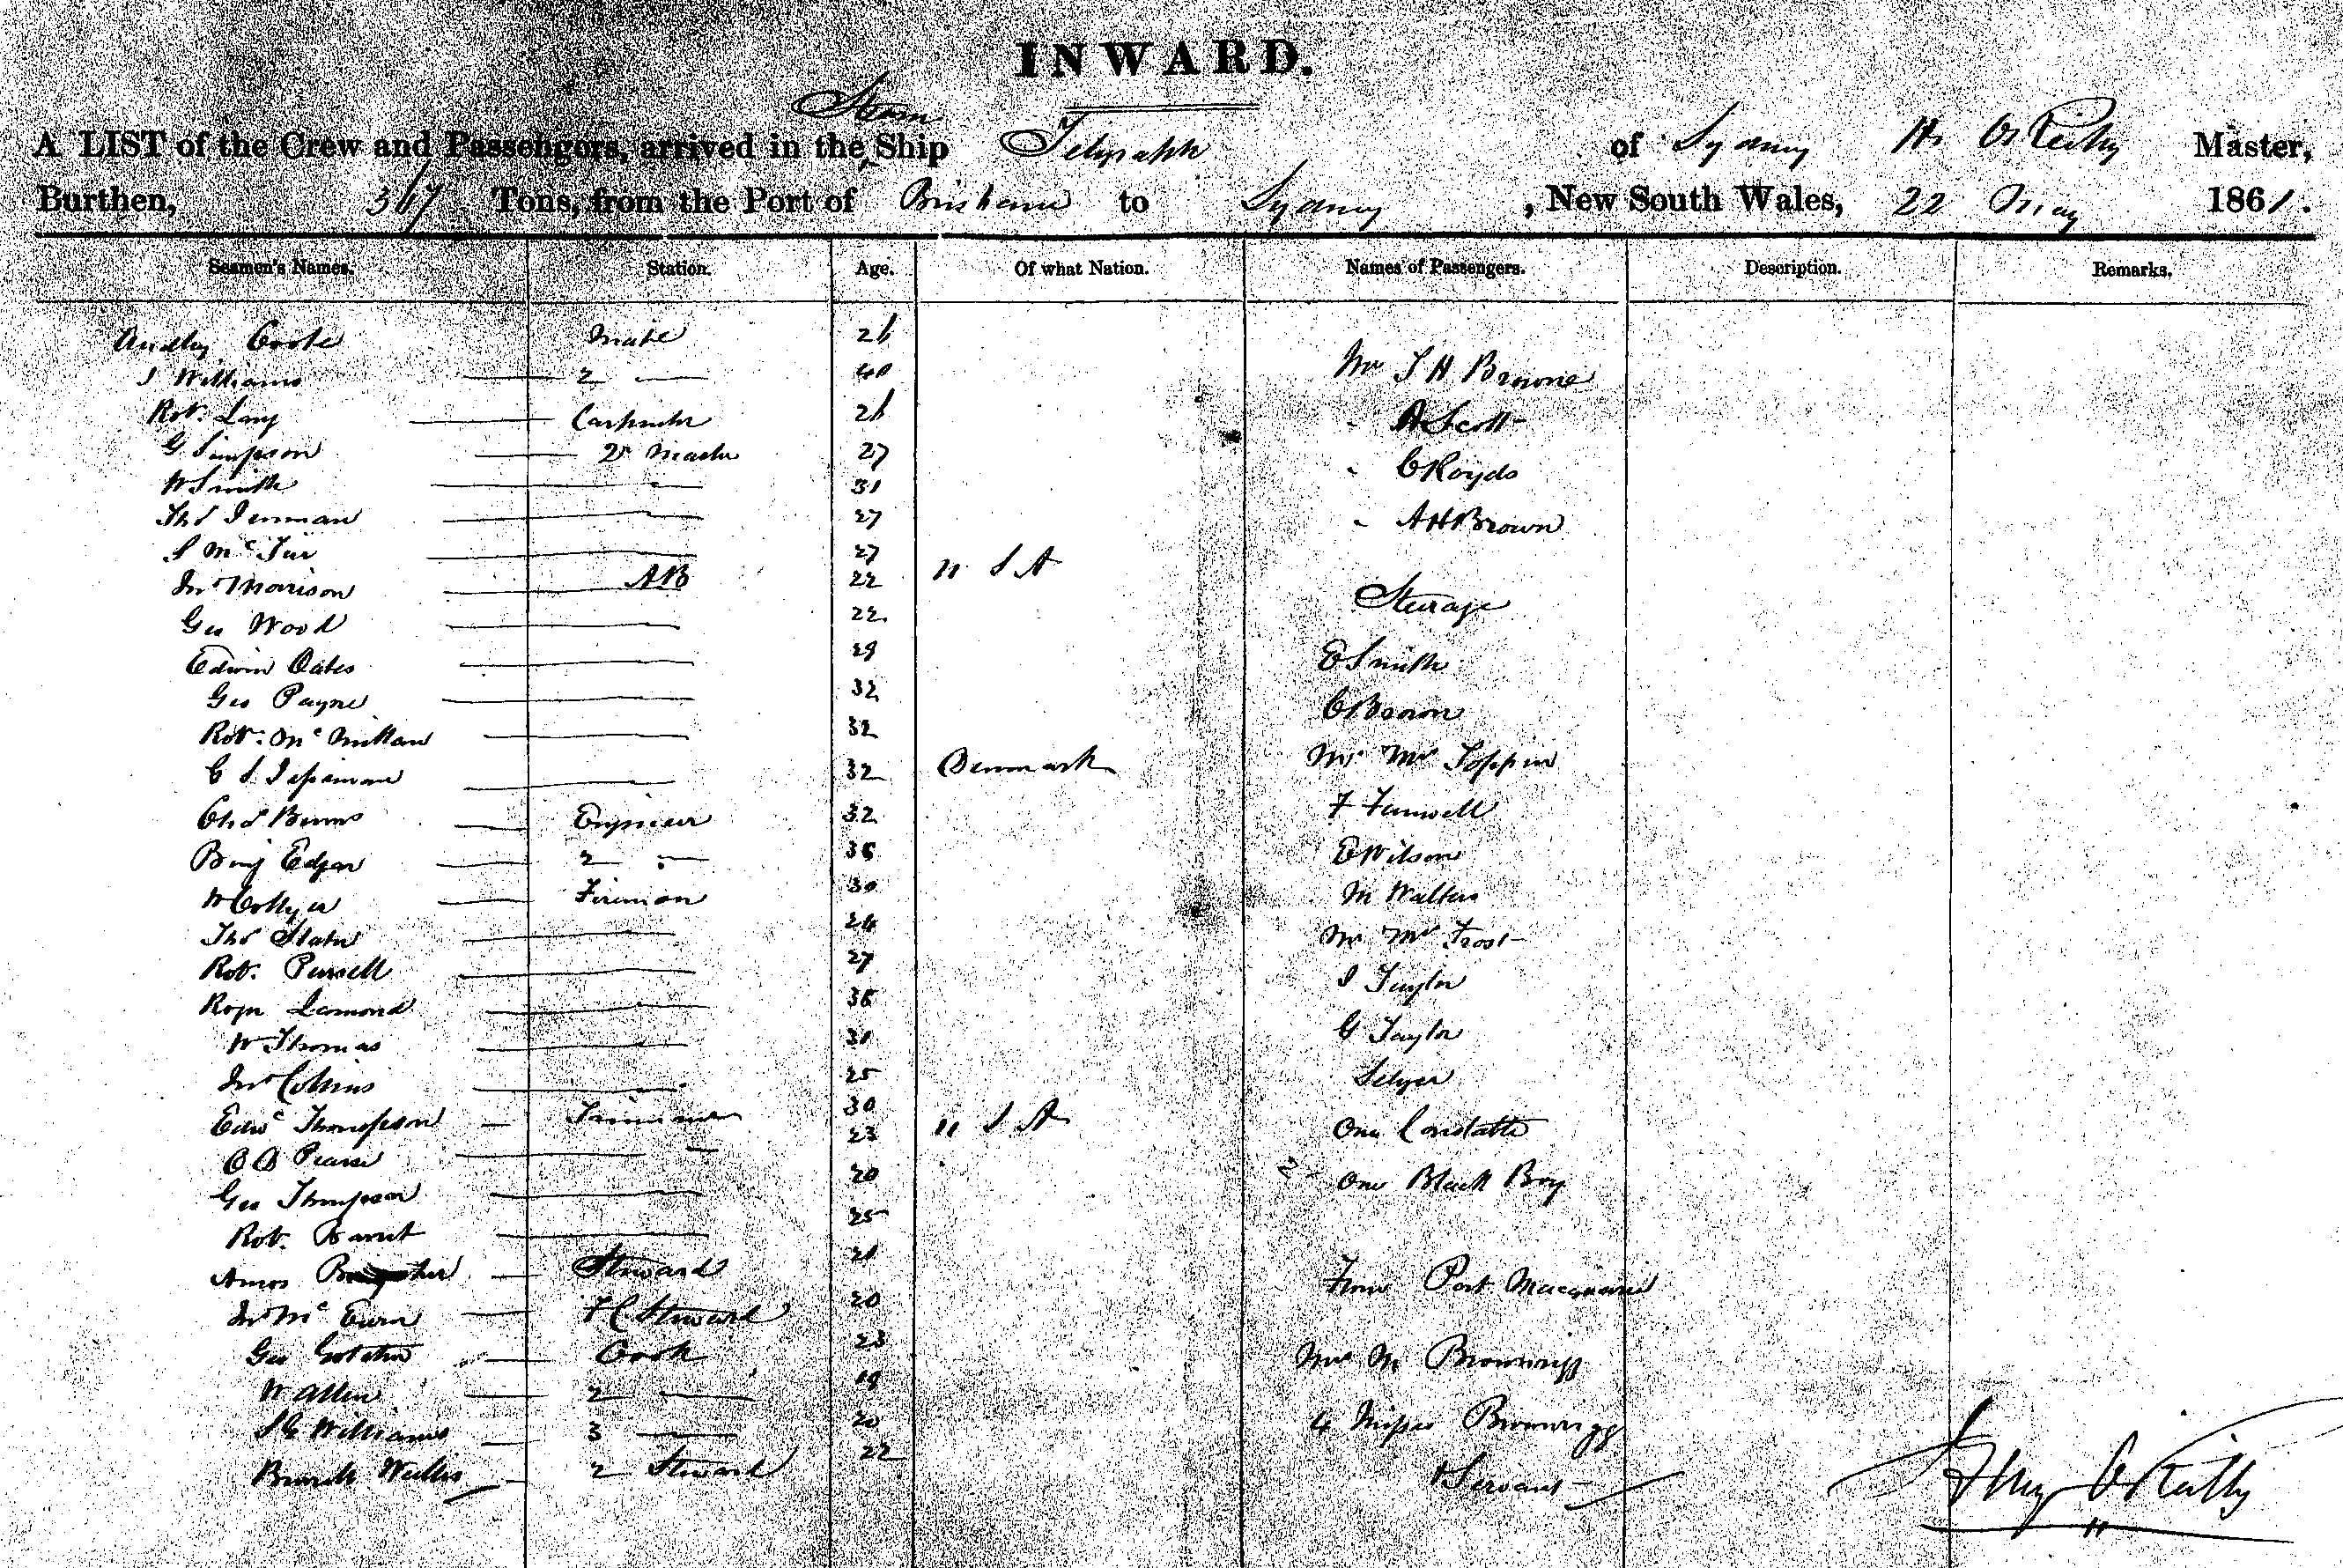 INWARD.
Steam
A LIST of the Crew and Passengers, arrived in the Ship Telegraph of Sydney H. O'Reilly Master,
Burthen, 367 Tons, from the Port of Brisbane to Sydney , New South Wales, 22 May 1861.
Seamen's Names. Station. Age. Of what Nation. Names of Passengers. Description. Remarks.
Audley Coote Mate 26
J Williams 2 — 40 Mr J H Browne
Robt. Lang Carpenter 26 " A Scott
G Simpson 2r Master 27 " C Royds
W Smith — 31
Thos — 27 " A H Brown
S Mc — 27
Jno Morrison AB 22 U S A Steerage
Geo Wood — 22
Edwin Oates — 29 E Smith
Geo Payne — 32 C Brown
Robt. McMillan — 32
C — 32 Denmark Mr Mrs Toppin
Chas Burns Engineer 32 F
Benj Edgar 2 — 35 E Wilson
W Collyer Fireman 30 M Walters
Thos Slater — 24 Mr Mrs Frost
Robt. Pursell — 27 J Taylor
Roger Lamond — 35
W Thomas — 31 G Taylor
Jno Collins — 25
Edwd Thompson Trimmer 30 U S A One Constable
Pearse — 23
Geo Thompson — 20 2 One Black Boy
Robt. Barret — 25
Amos Steward 21 From Port Macquarie
Jno Mc F C Steward 20
Geo Cook 23 Mrs M Brownrigg
W Allen 2 — 19
J C Williams 3 — 20 4 Misses Brownrigg
2 Steward 22 & Servant
Henry O'Reilly